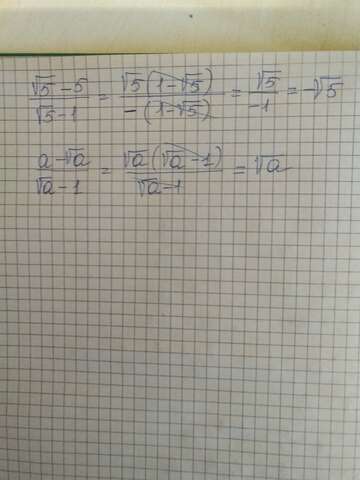 (√5 - 5)/(√5 - 1) = √5(1-√5)/-(1-√5) = √5/-1 = -√5
(a-√a)/(√a - 1) = √a(√a - 1)/(√a-1) = √a